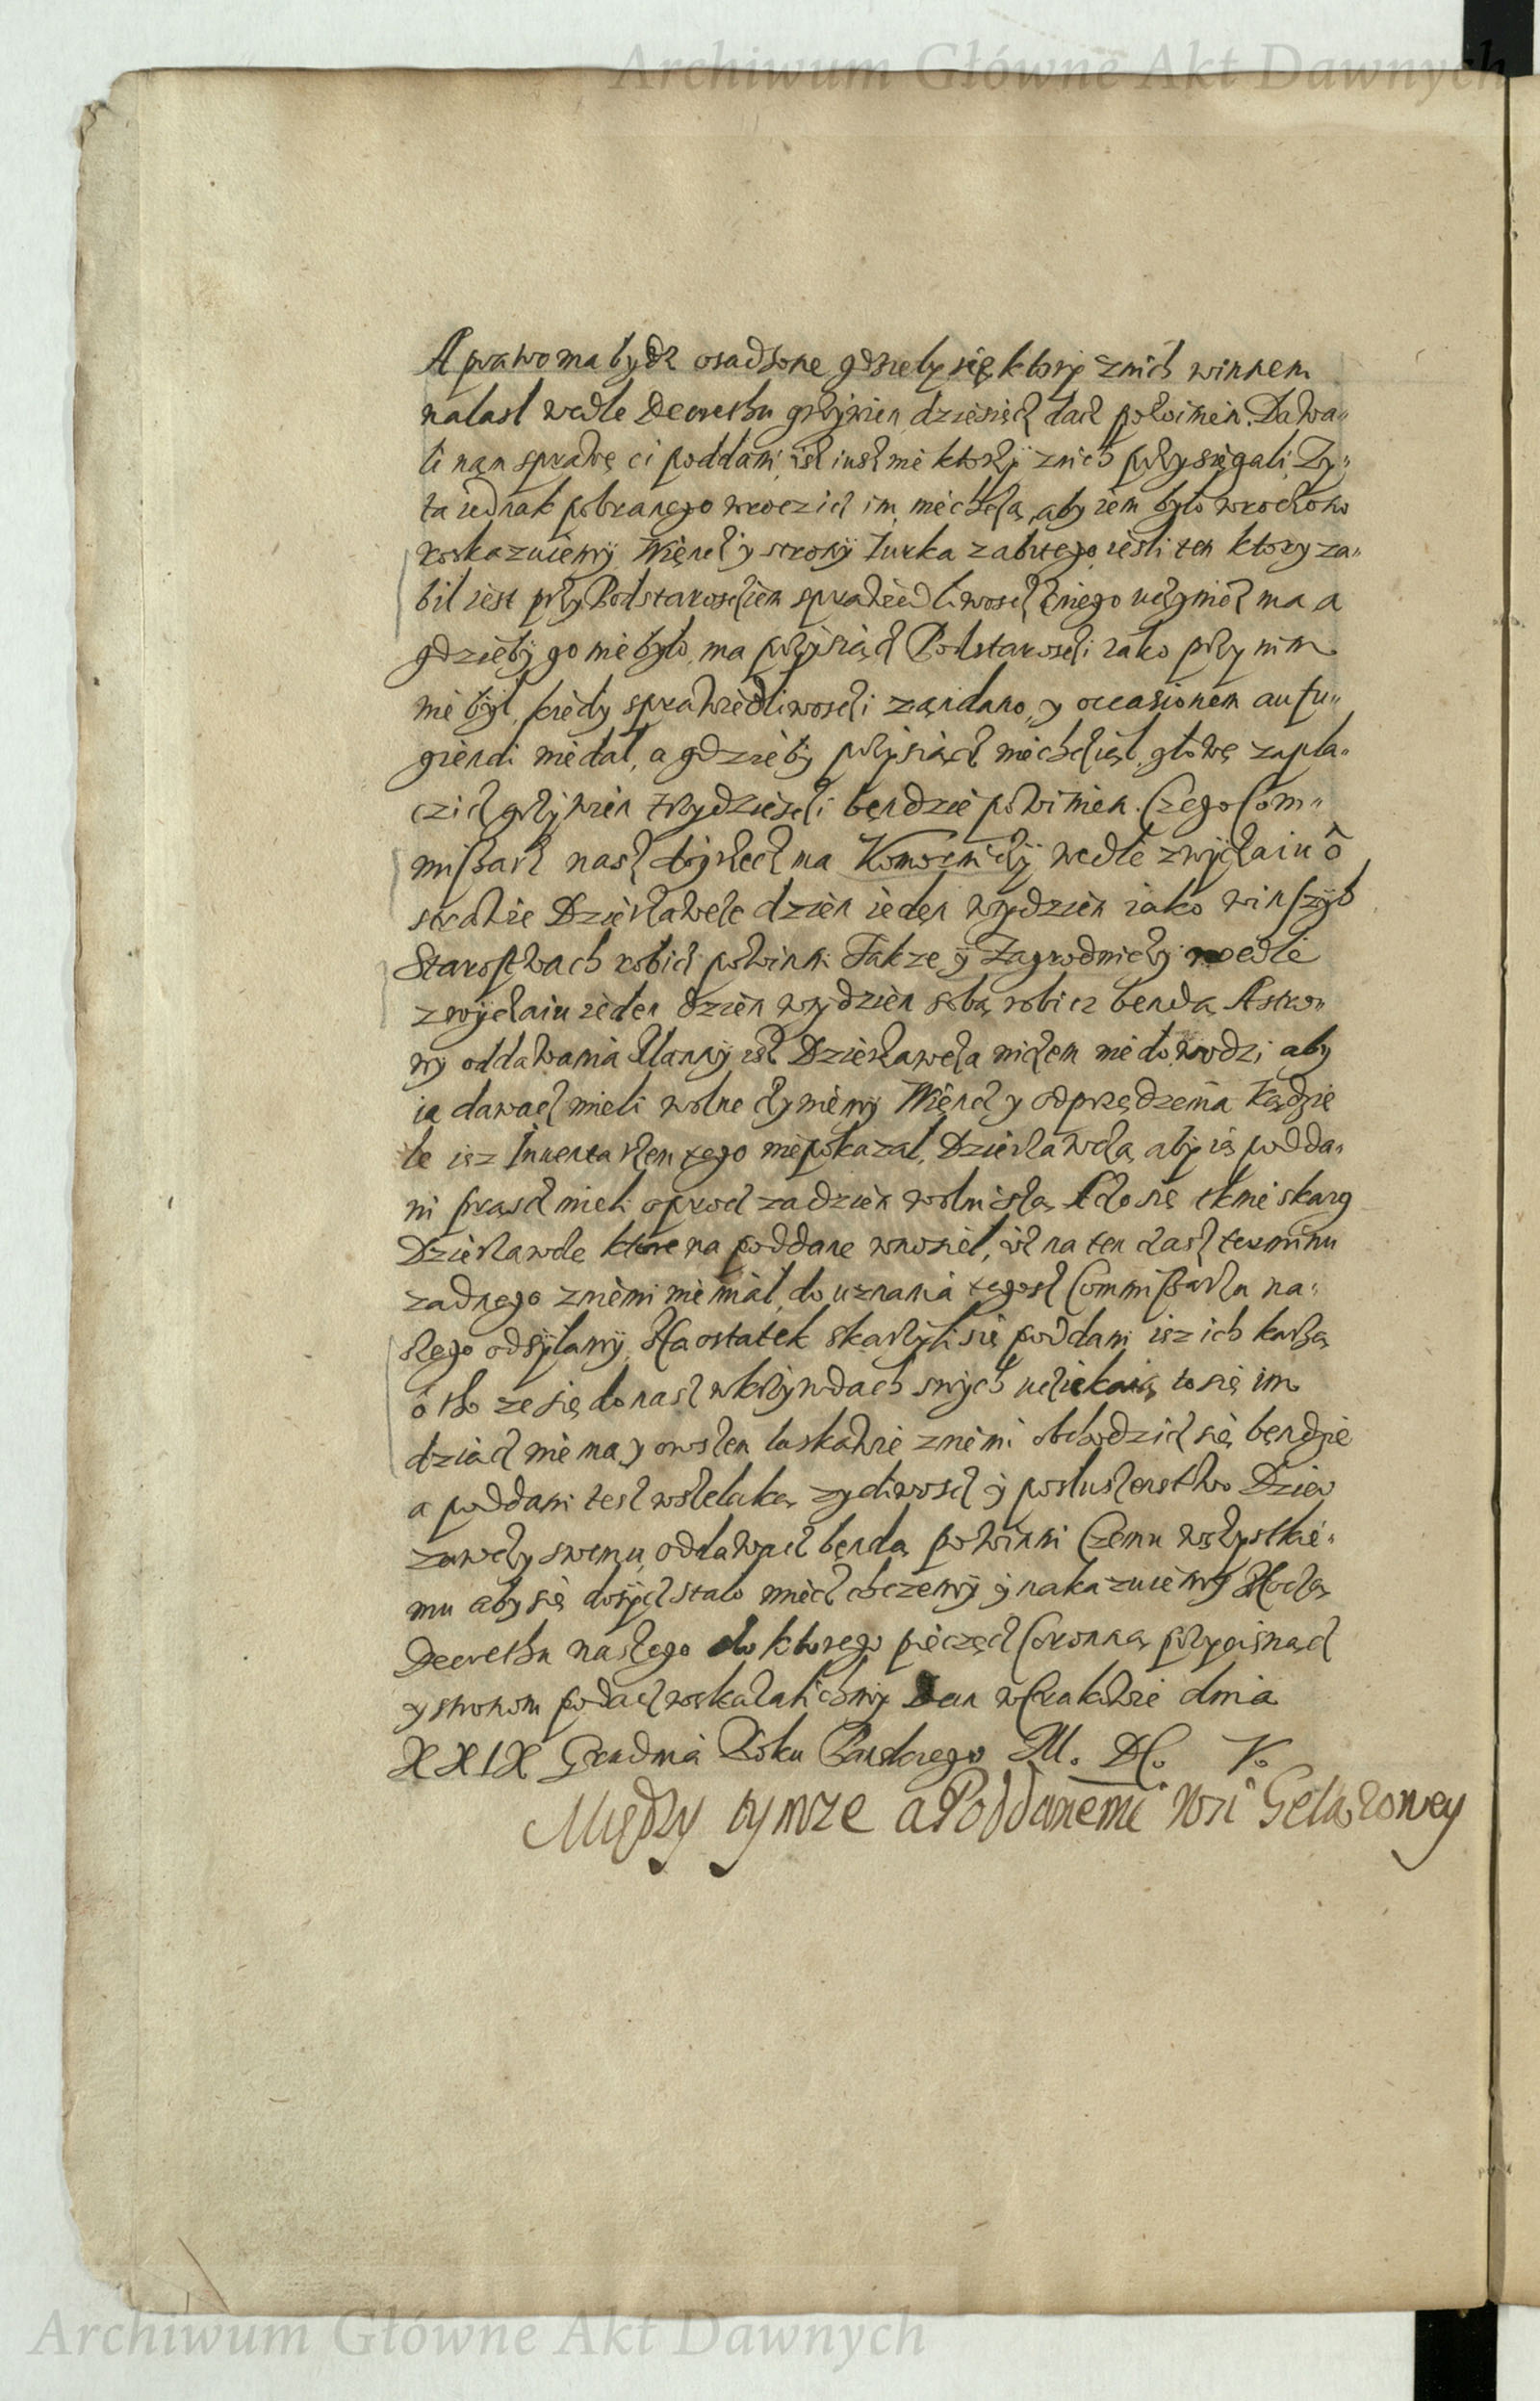 Archiwum Główne Akt Dawnych
A prawo ma bydz osadzone gdzieby się ktory znich winnem
nalasl wedle Decrethu grzywien dziesiecz dacz powinien. Dawa„
li nam sprawę ci poddani isz iusz nie ktorzy znich przysięgali Zy„
ta iednak pobranego wroczicz im niechcą, aby iem było wrochono
roskazuiemy. Więncz y strony Jurka zabitego iesli ten ktory za„
bil iest przy Podstarosciem sprawiedliwoscz zniego uczynicz ma a
gdzieby go nie było, ma przysiącz Podstarosci iako przy nim
nie był, kiedy sprawiedliwosci ząndano, y occasionem aufu„
giendi nie dal, a gdzieby przysiącz niechciał, głowę zapla„
czicz grzywien trzydziesci bęndzie powinien. Czego Com„
missarz nasz doyrzecz ma Komornicy wedle zwyczaiu o
strawie Dzierzawcze dzien ieden wtydzien iako winszych
Starostwach robicz powinni Takze y Zagrodnicy wedle
zwyczaiu ieden dzien wtydzien sobą robicz bendą A stro„
ny oddawania Manny isz Dzierzawcza niczem nie dowodzi aby
ia dawacz mieli wolne czyniemy Więncz y od przędzenia Kądzie
le isz Inuentarzem tego nie pokazal, Dzierzawcza aby ią podda„
ni prząscz mieli oprocz za dzien wolni są A co się tknie skarg
Dzierzawcze ktore na poddane wnosiel, isz na ten czasz terminu
zadnego zniemi nie mial, do uznania tegosz Commissarzu na„
szego odsyłamy, Na ostatek skarzyli się poddani isz ich karzą
o tho ze się do nasz wkrzywdach swych uciekaią, to się im
dziacz nie ma y owszem laskawie zniemi obchodzicz się bęndzie
a poddani tesz wszelaką zycliwoscz y posluszenstwo Dzier
zawczy swemu oddawacz bęndą powinni Czemu wszystkie„
mu aby się dosycz stalo miecz chczemy y nakazuiemy Mocą
Decrethu naszego do ktorego pieczęcz Coronną przycisnącz
y stronom podacz roskazalichmy Dan w Crakowie dnia
XXIX Grudnia Roku Panskiego M. D. V.
Między tymze a Poddanemi wsi
Archiwum Główne Akt Dawnych